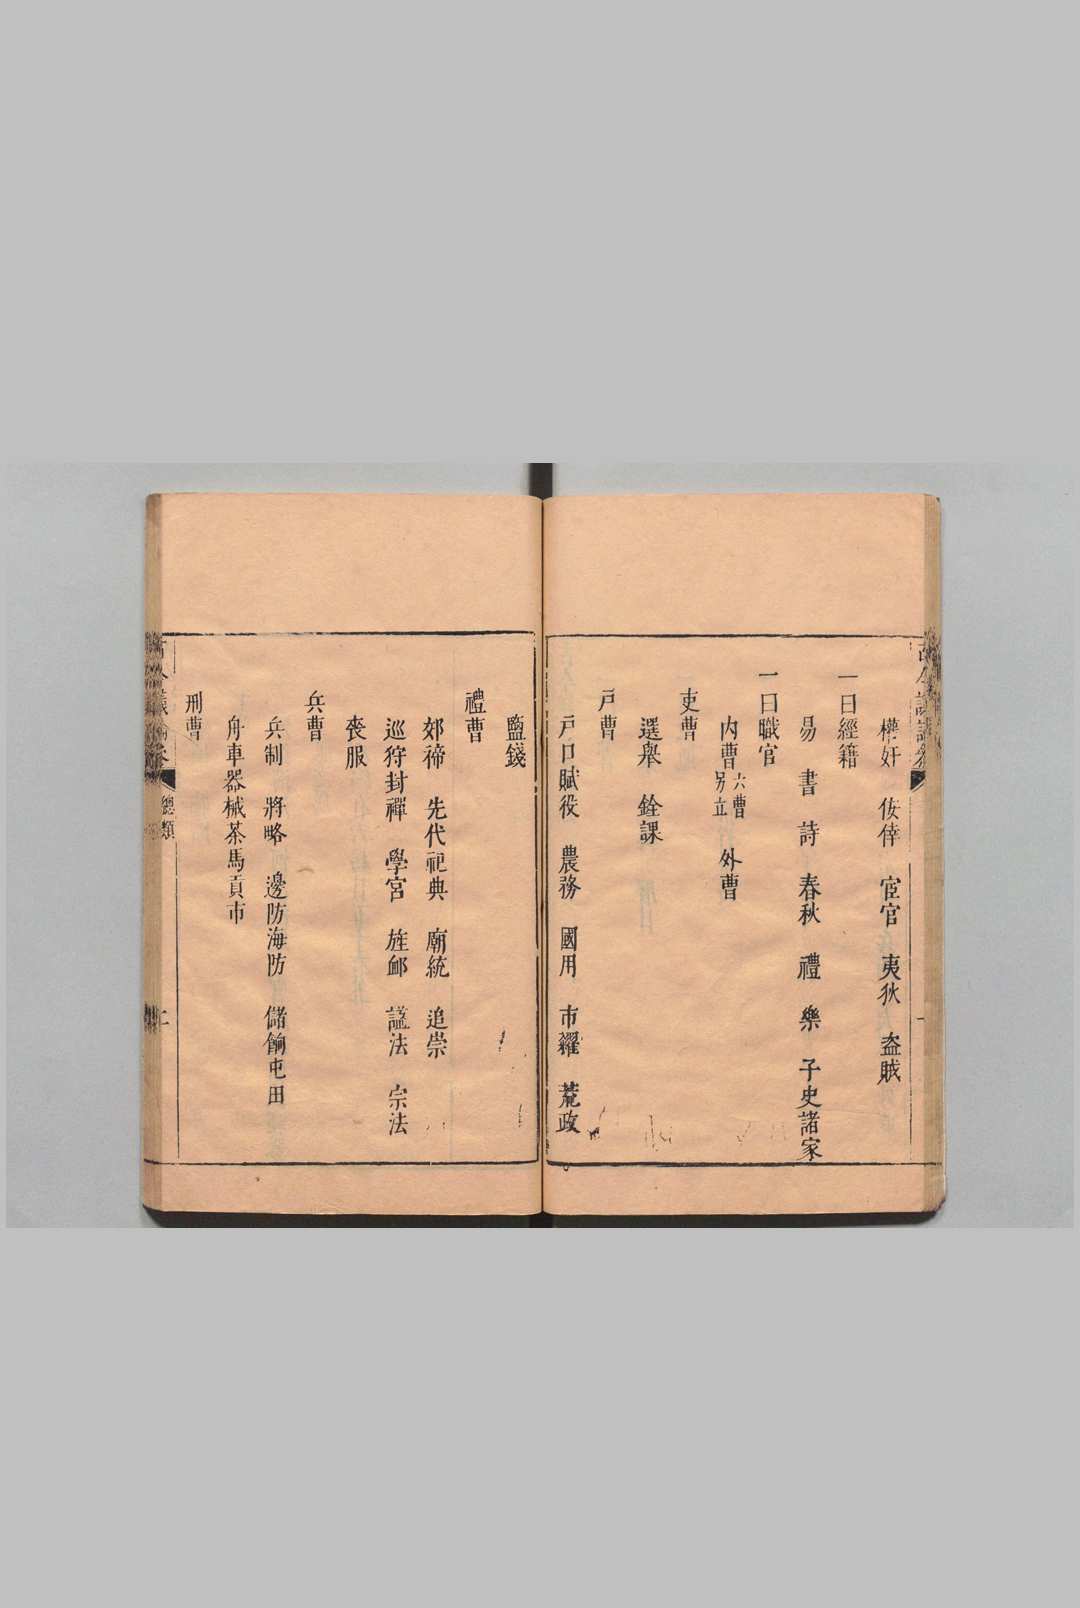 權奸 佞倖 宦官 夷狄 盗賊
一曰經籍
易 書 詩 春秋 禮 樂 子史諸家
一曰職官
內曹 六曹另立 外曹
吏曹
選舉 銓課
戸曹
戸口賦役 農務 國用 市糴 荒政
鹽錢
禮曹
郊禘 先代祀典 廟統 追崇
巡狩封禪 學宮 旌邺 諡法 宗法
喪服
兵曹
兵制 將略 邊防海防 儲餉屯田
舟車器械茶馬貢市
刑曹
總類
二